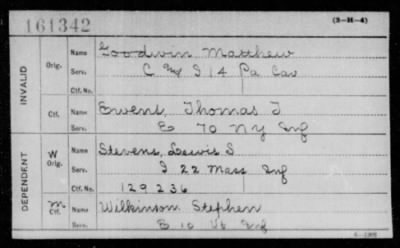 161342 (3-H-4)
INVALID
Orig. Name Goodwin Matthew
Serv. C & I 14 Pa Cav
Ctf. No.
Ctf. Name Ewens, Thomas J
Serv. E 70 NY Inf
DEPENDENT
W Orig. Name Stevens, Lewis S
Serv. I 22 Mass Inf
Ctf. No. 129236
M Ctf. Name Wilkinson Stephen
Serv. E 10 Vt Inf